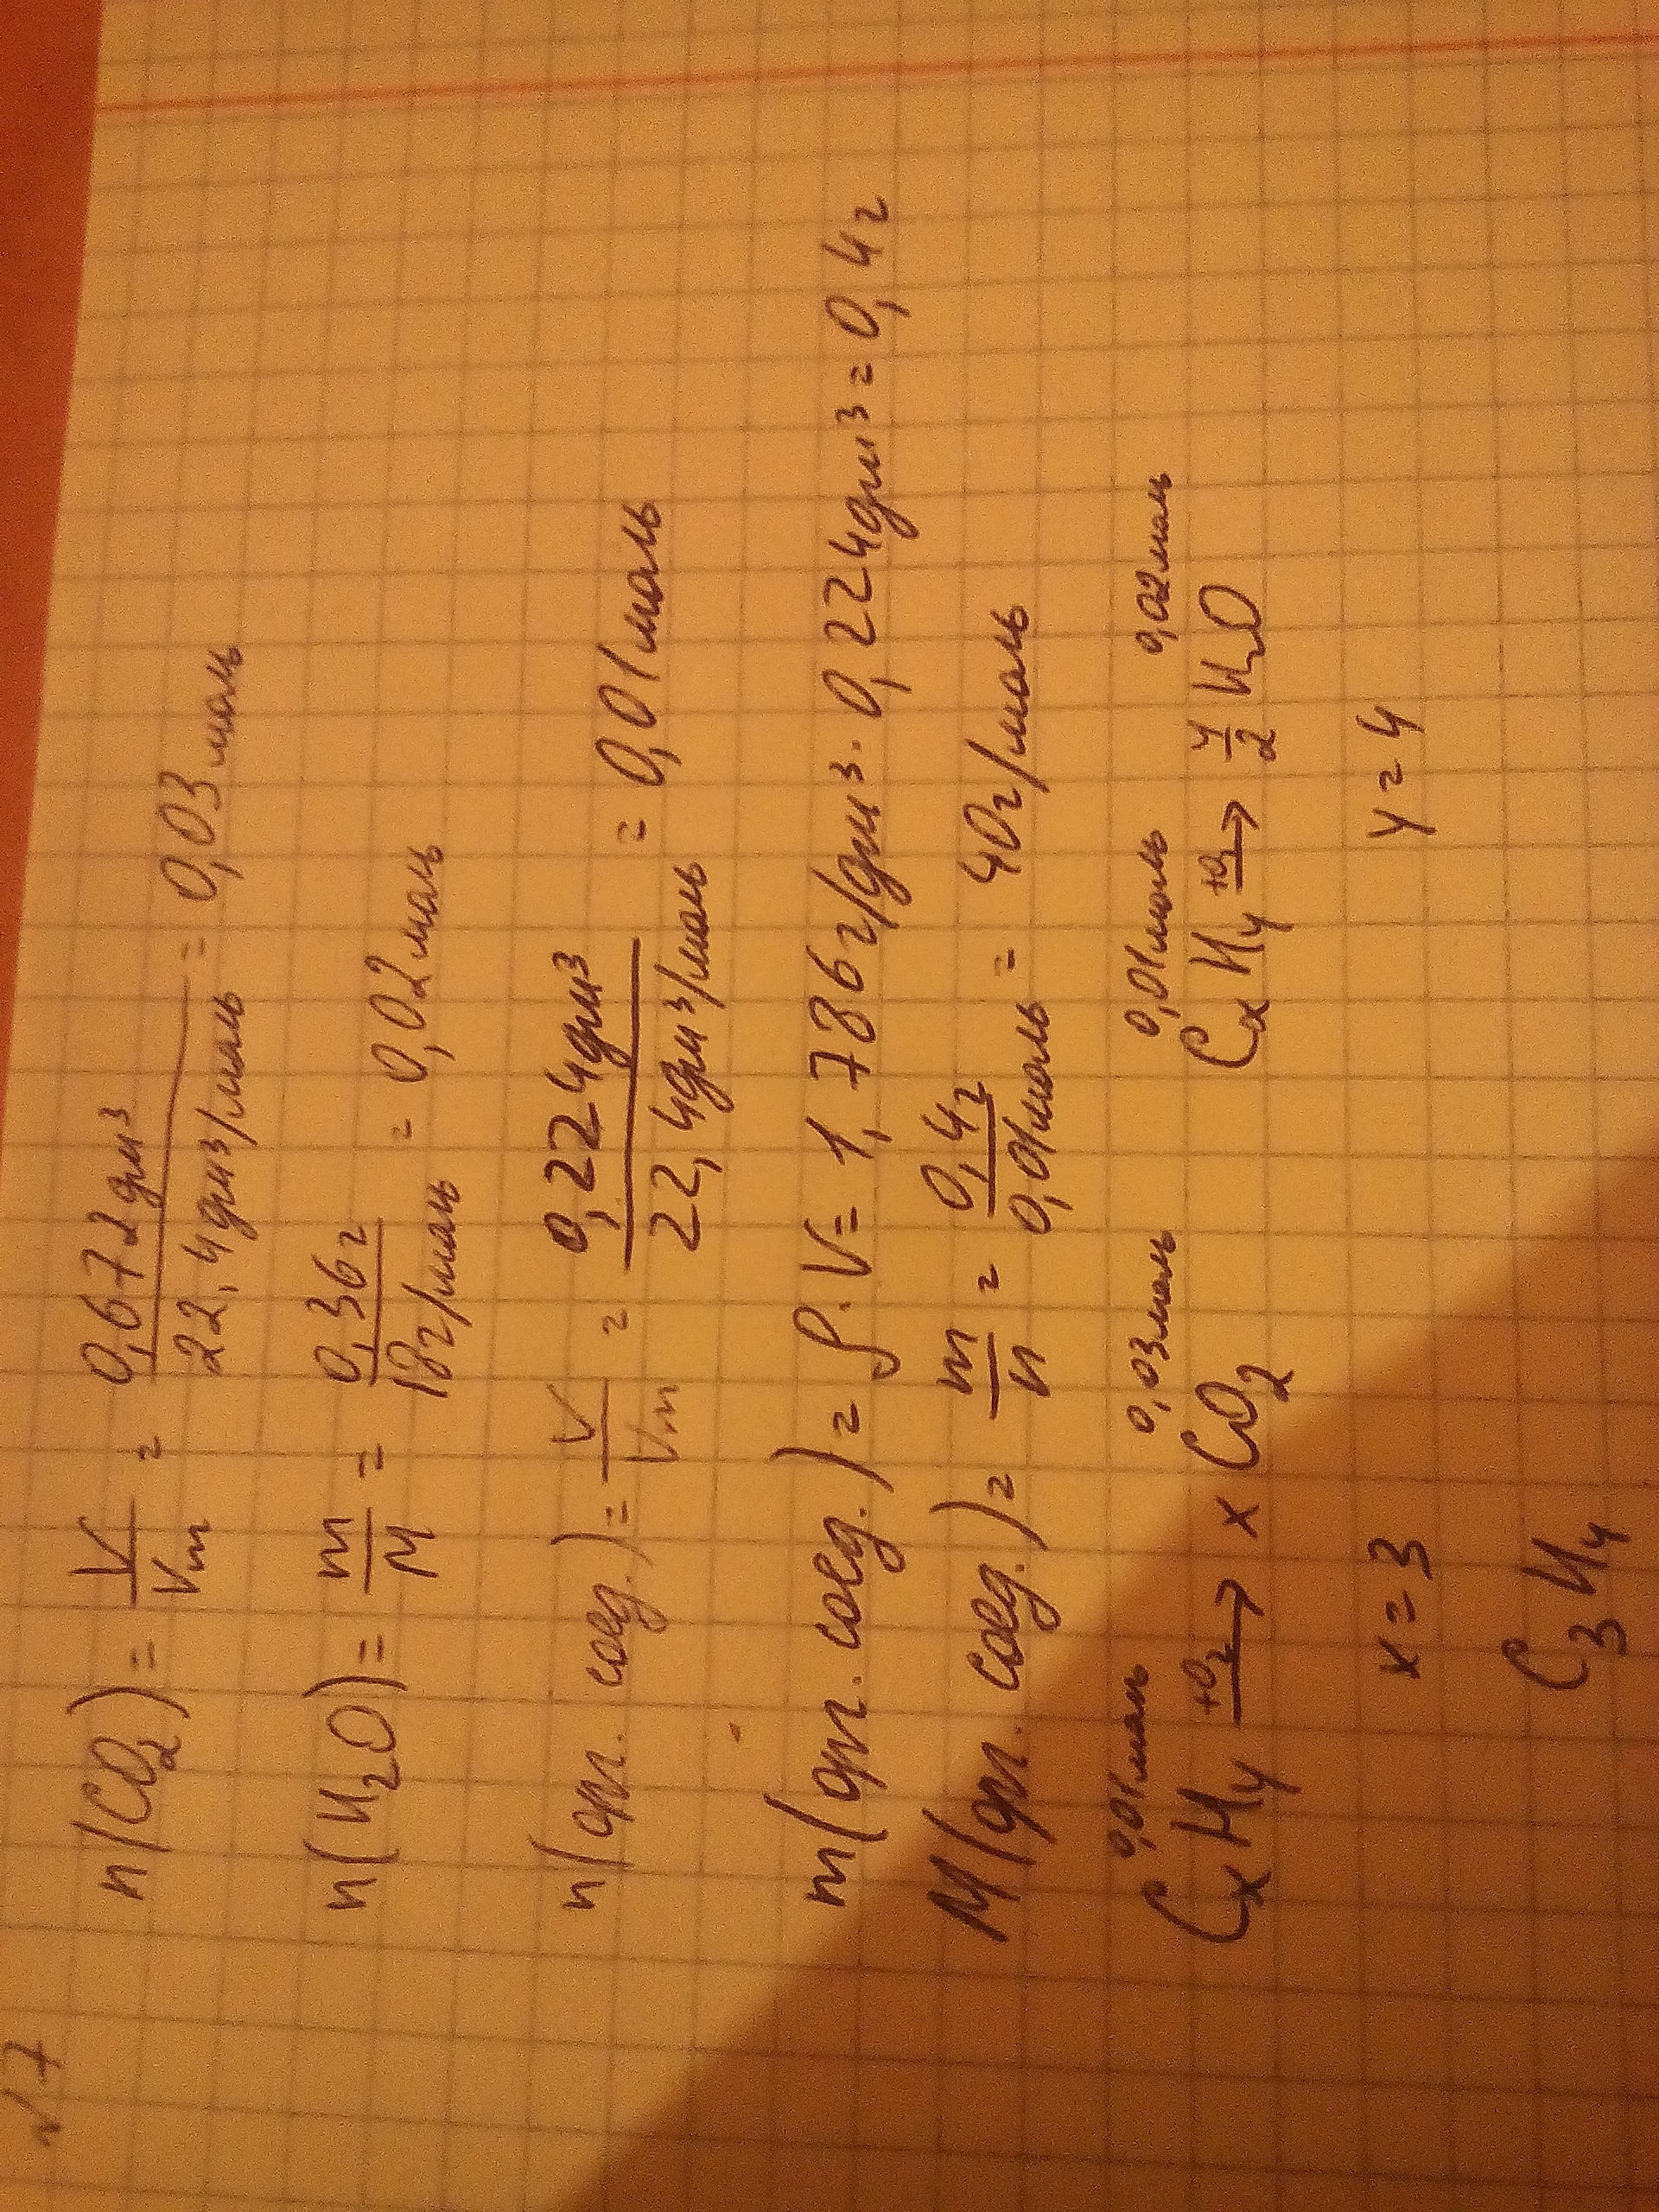 √7
n(CO₂) = V/Vm = 0,672дм³/22,4дм³/моль = 0,03моль
n(H₂O) = m/M = 0,36г/18г/моль = 0,02моль
n(орг. соед.) = V/Vm = 0,224дм³/22,4дм³/моль = 0,01моль
m(орг. соед.) = ρ·V = 1,786г/дм³·0,224дм³ = 0,4г
M(орг. соед.) = m/n = 0,4г/0,01моль = 40г/моль
0,01моль 0,03моль 0,01моль 0,02моль
CxHy +O₂→ x CO₂ CxHy +O₂→ y/2 H₂O
x = 3 y = 4
C₃H₄